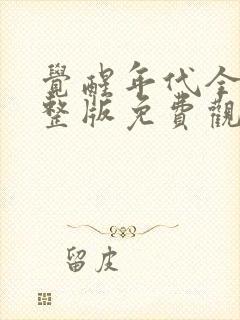 覺醒年代全
整版免費觀
留皮